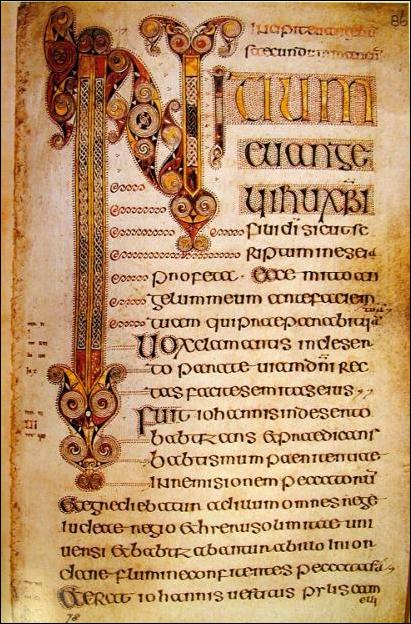 86
Incipit euangelium
secundum
INITIUM
euange
lii ihu xpi
filii di sicut sc
riptum in eseia
profeta · Ecce mitto an
gelum meum ante faciem
tuam qui praeparabit uiā
Uox clamantis in deser
to parate uiam dni rec
tas facite semitas eius
Fuit iohannis in deserto
babtizans & praedicans
babtismum paenitentiae
in remisionem peccatorū
& egrediebatur ad illum omnes
iudeae regio & hierusolimitae uni
uersi & babtizabantur ab illo in ior
dane flumine confitentes peccata sua
& erat iohannis uestitus pylis cam
elli
78